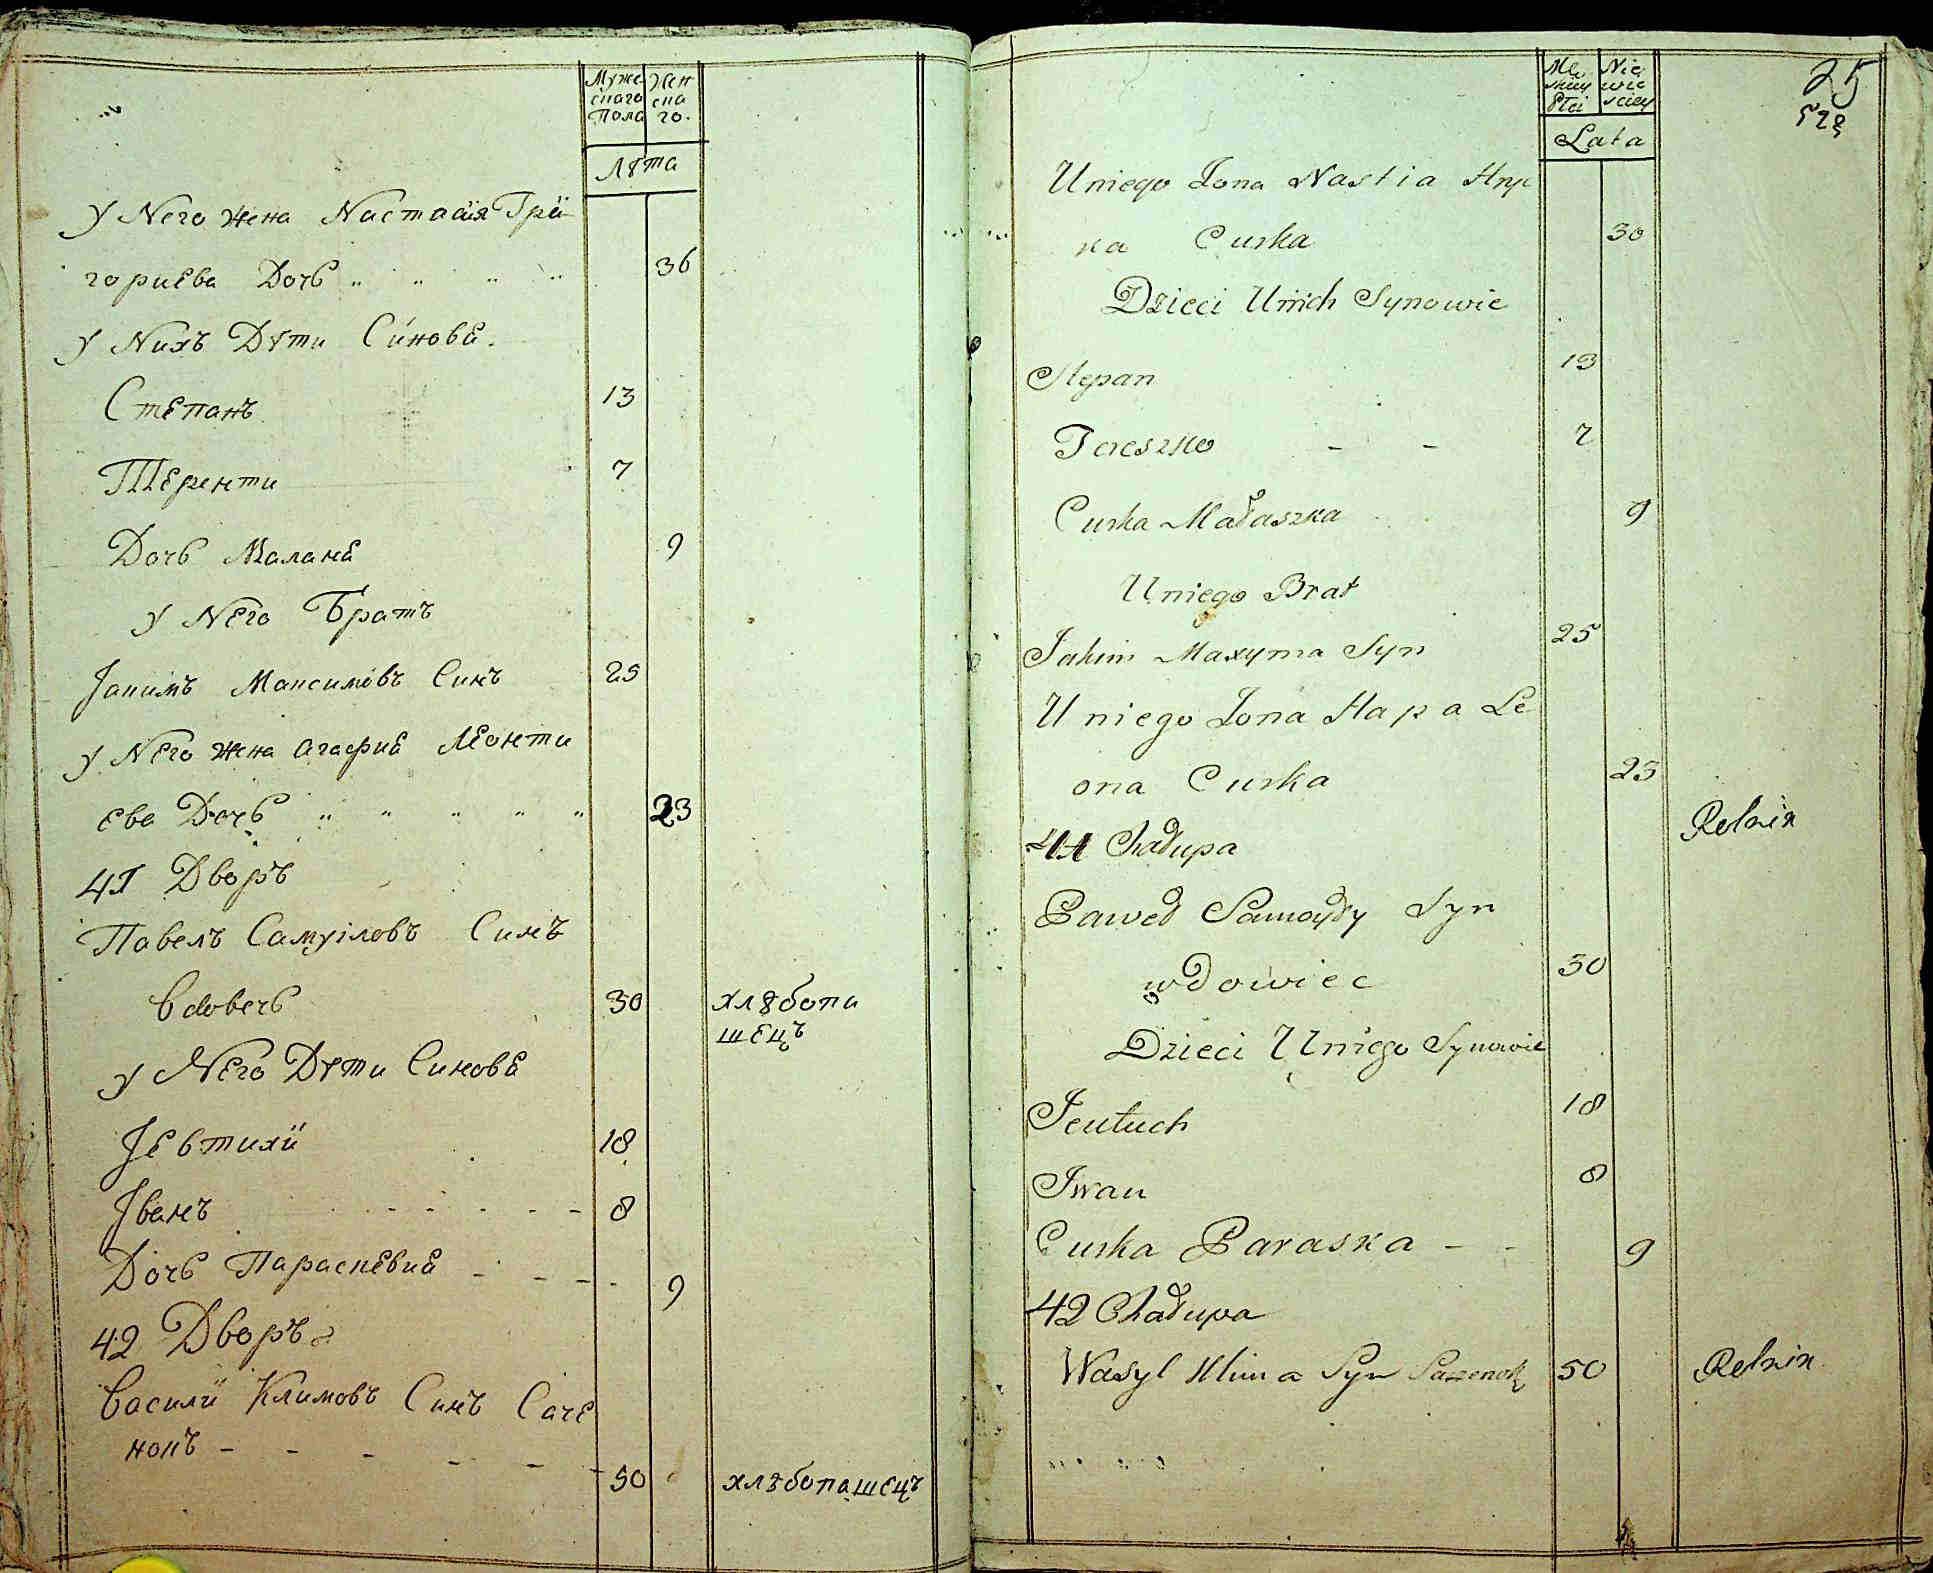 Муже Жен
скаго ска
Пола го.
Лѣта
У Него жена Настасїя Грй
гориева Дочь 36
У Нихъ Дѣти Сйнове.
Степанъ 13
Теренти 7
Дочь Малане 9
У Него Братъ
Јакимъ Максимовъ Синъ 25
У Него жена агафие Леонти
ева Дочь 23
41 Дворъ
Павелъ Самуіловъ Синъ
вдовечь 30 хлѣбопа
шецъ
У Него Дѣти Синове
Јевтихй 18
Јванъ 8
Дочь Параскевие 9
42 Дворъ
Василй Климовъ Синъ Саче
нокъ 50 хлѣбопашецъ
25
Lata
Uniego Zona Nastia Hry
ka Curka 30
Dzieci Unich Synowie
Stepan 13
Tereszko 7
Curka Małaszka 9
Uniego Brat
Jakim Maxyma Syn 25
Uniego Zona Hapa Le
ona Curka 23
41 Chałupa Rolnik
Paweł Samoyły Syn
wdowiec 30
Dzieci Uniego Synowie
Jeutuch 18
Iwan 8
Curka Paraska 9
42 Chałupa
Wasyl Klima Syn Sazenok 50 Rolnik